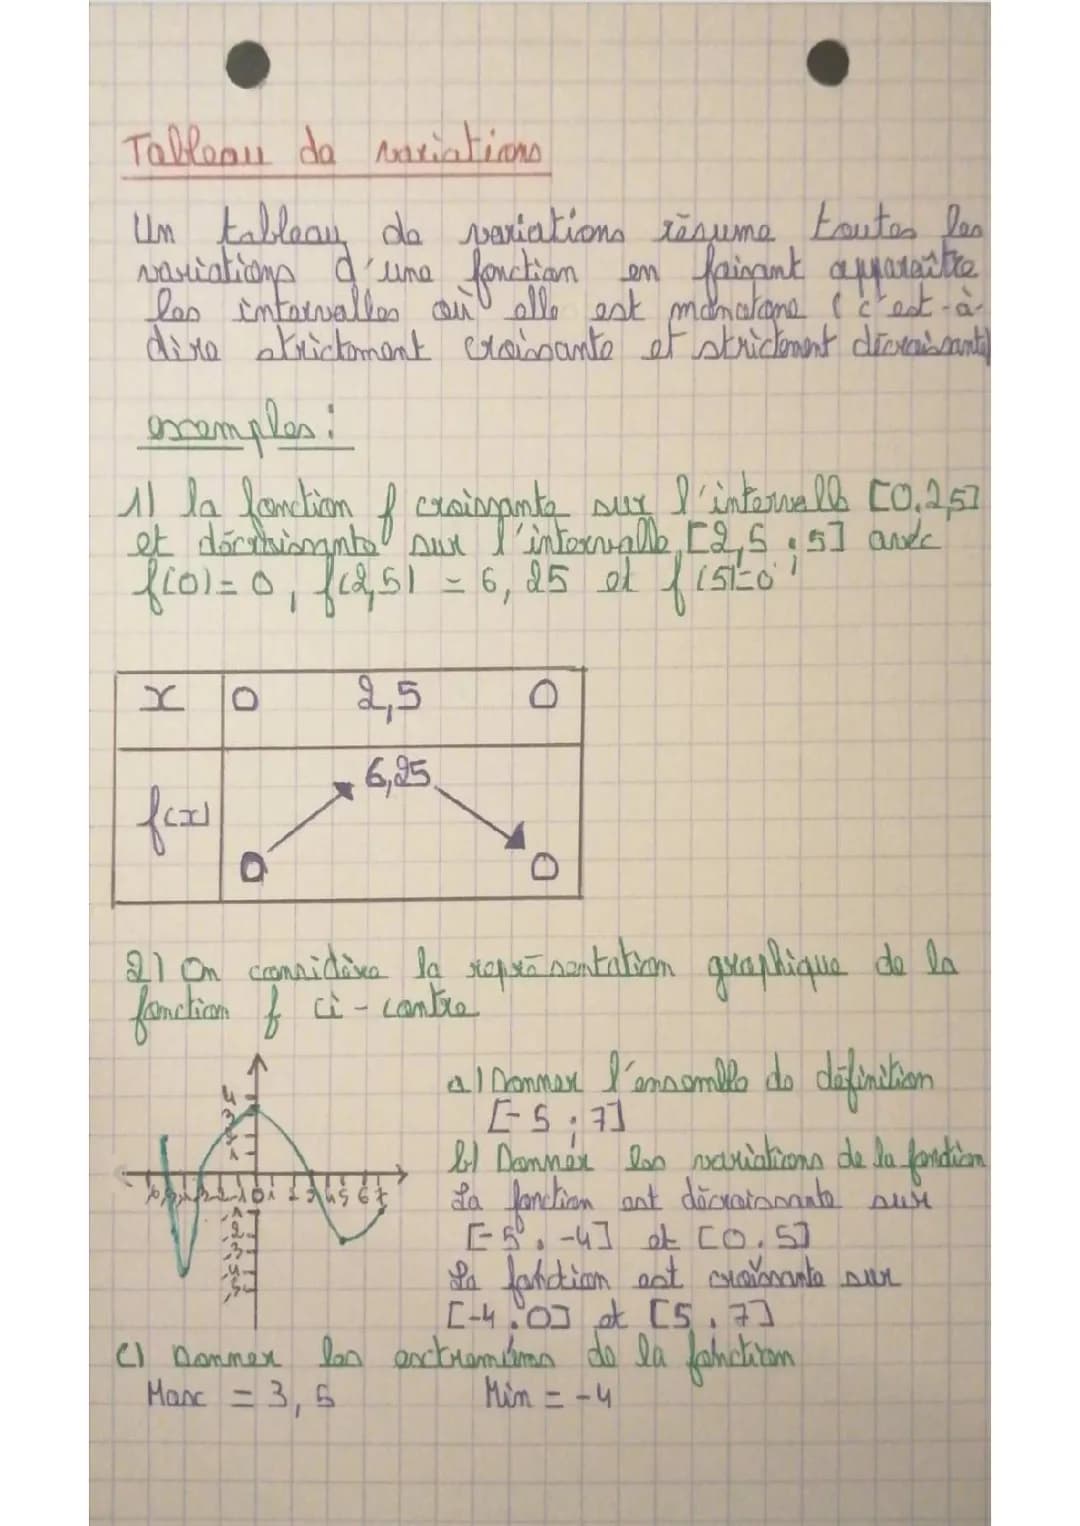 Tableau de variations
Un tableau de variations résume toutes les
variations d'une fonction en faisant apparaître
les intervalles où elle est monotone (c'est-à-
dire strictement croissante et strictement décroissante)
exemples :
1) la fonction f croissante sur l'intervalle [0;2,5]
et décroissante sur l'intervalle [2,5 ; 5] avec
f(0)=0, f(2,5) = 6,25 et f(5)=0
x 0 2,5 0
f(x) 0 6,25 0
2) On considère la représentation graphique de la
fonction f ci-contre
a) Donner l'ensemble de définition
[-5 ; 7]
b) Donner les variations de la fonction
La fonction est décroissante sur
[-5 ; -4] et [0 ; 5]
La fonction est croissante sur
[-4 ; 0] et [5 ; 7]
4
3
-2
-3
-4
-5
c) Donner les extremums de la fonction
Max = 3,5 Min = -4